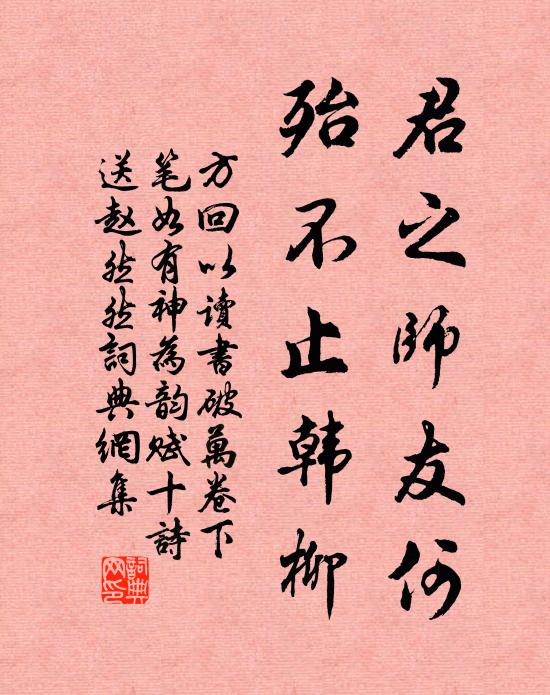 君之師友何
殆不止韩柳
方回以讀書破萬卷下
笔如有神為韵赋十詩
送赵然然詞典網集
詞典网印